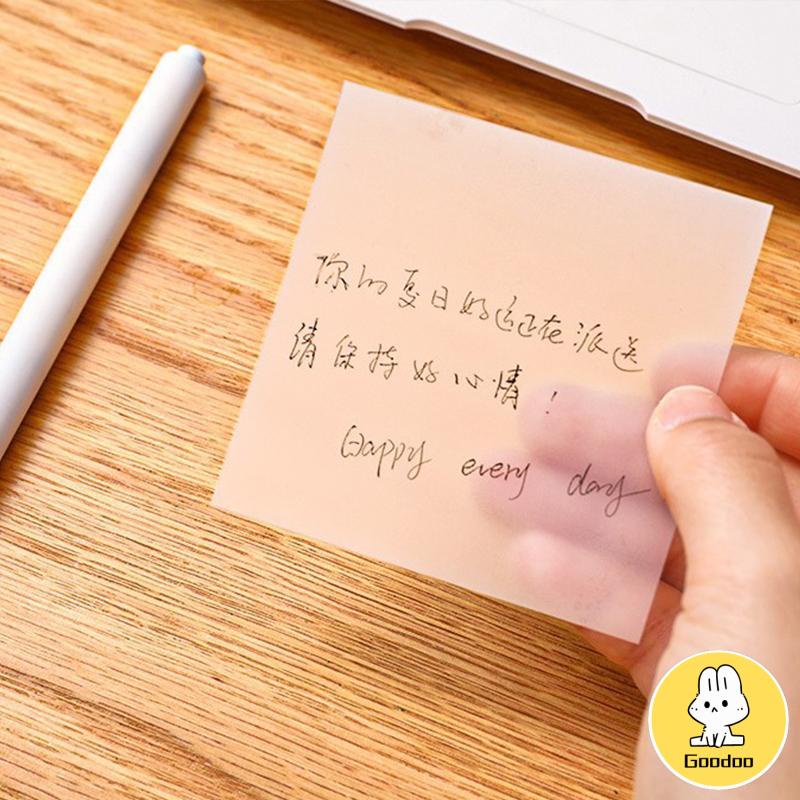 你的夏日好运正在派送
请保持好心情!
Happy every day
Goodoo